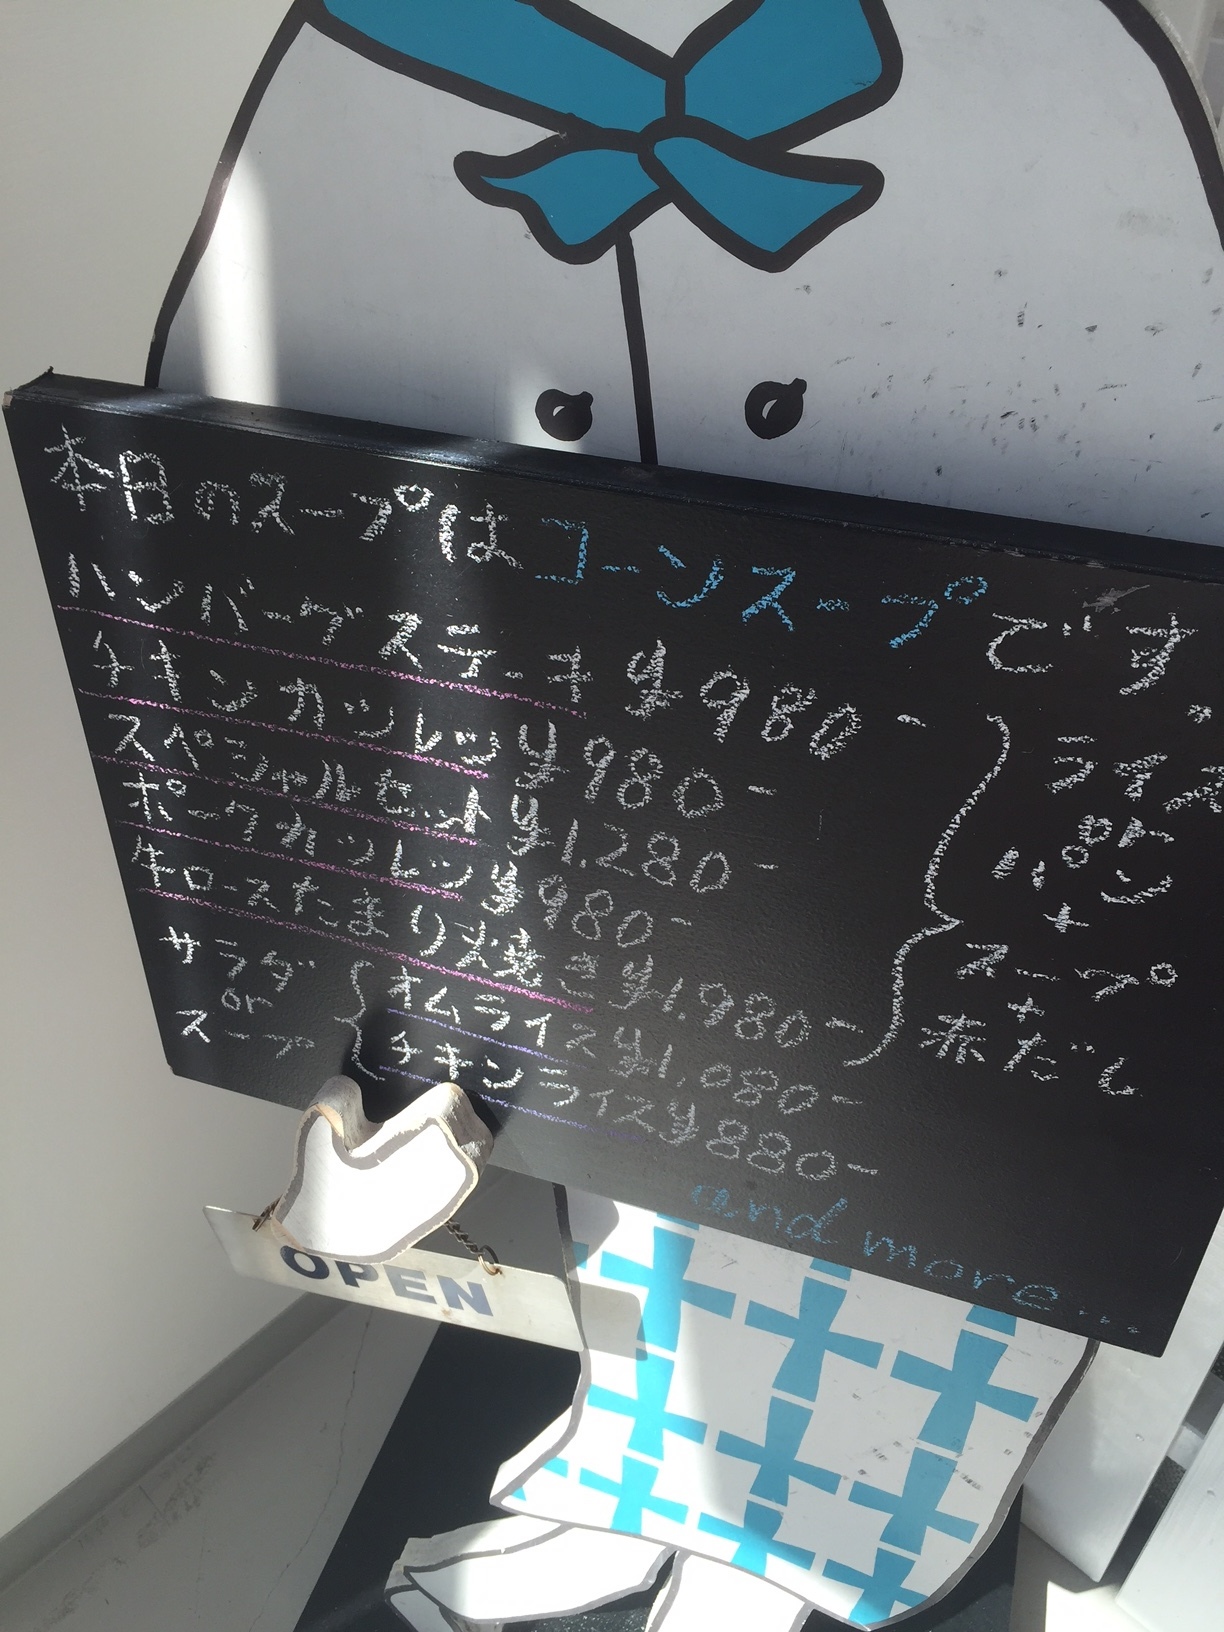 本日のスープはコーンスープです
ハンバーグステーキ ¥980-
チキンカツレツ ¥980-
スペシャルセット ¥1.280-
ポークカツレツ ¥980-
牛ロースたまり炙焼き ¥1.980-
ライス
or
パン
+
スープ
+
赤だし
サラダ
or
スープ
オムライス ¥1.080-
チキンライス ¥880-
and more....
OPEN